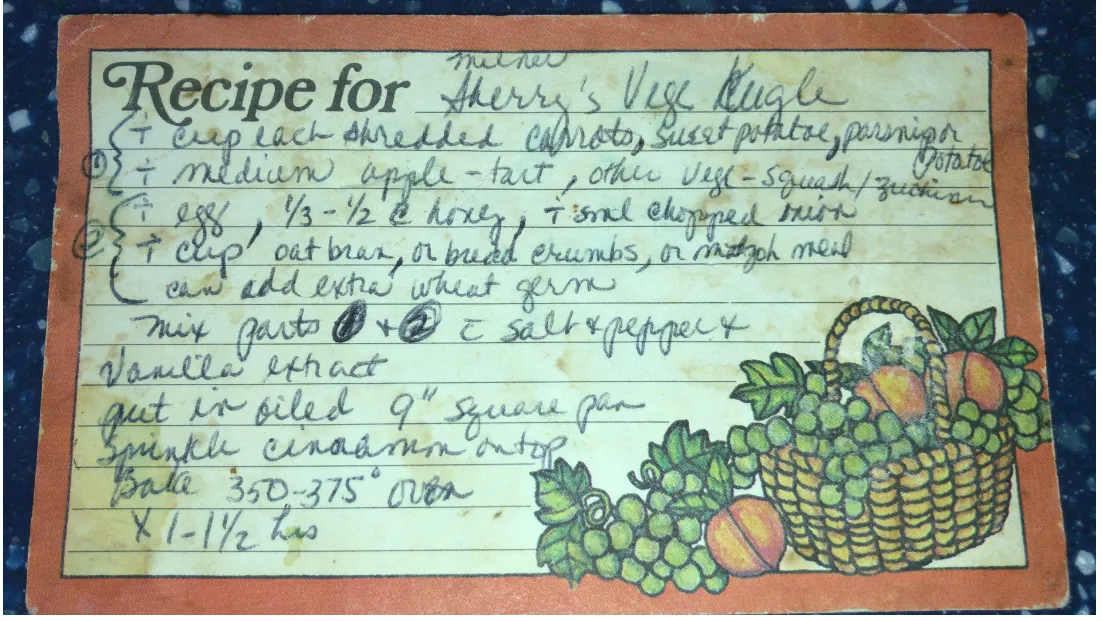 Milner
Recipe for Sherry's Vege Kugle
① ṫ cup each shredded carrots, sweet potatoe, parsnip or
potatoe
ṫ medium apple - tart, other vege - squash / zuchinni
② ṫ egg, 1/3 - 1/2 c honey, ṫ sml chopped onion
ṫ cup oat bran, or bread crumbs, or matzoh meal
can add extra wheat germ
mix parts 1 + 2 c̄ salt + pepper +
Vanilla extract
put in oiled 9" square pan
Sprinkle cinnamon on top
Bake 350-375° oven
X 1 - 1 1/2 hrs